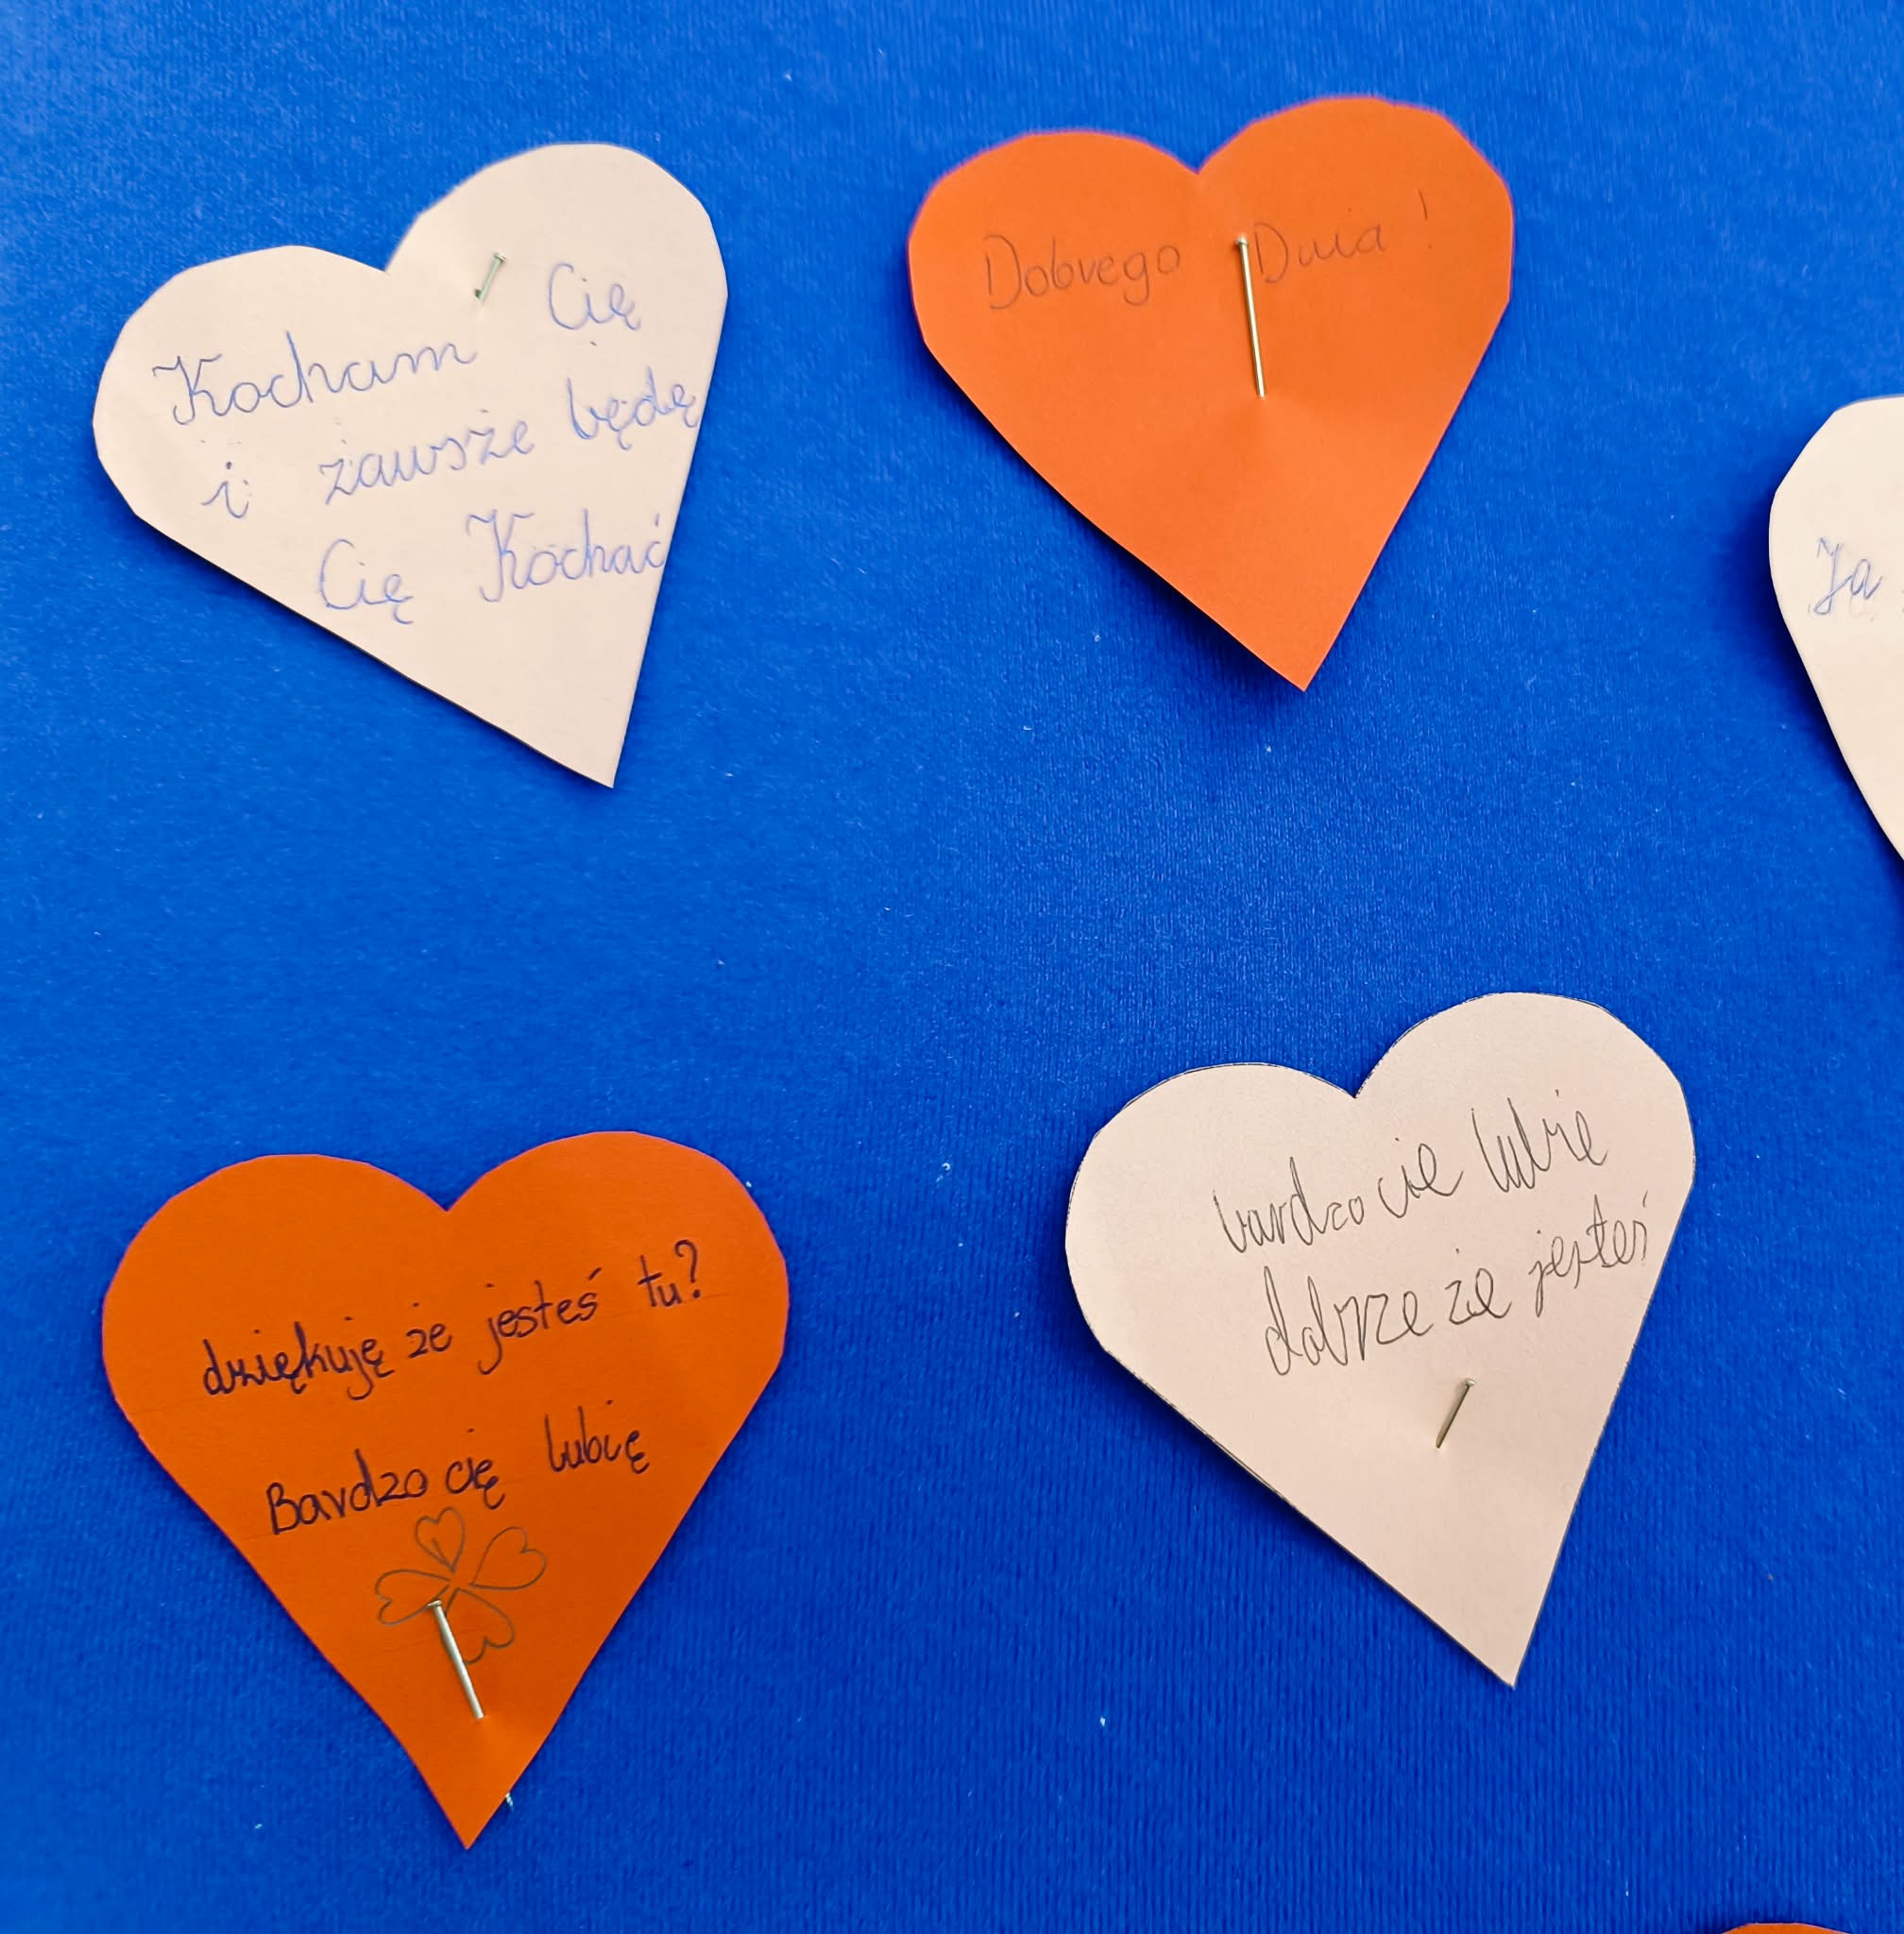 Kocham Cię
i zawsze będę
Cię Kochać
Dobrego Dnia!
Ja
dziękuję że jesteś tu?
Bardzo cię lubię
bardzo cie lubie
dobrze że jesteś